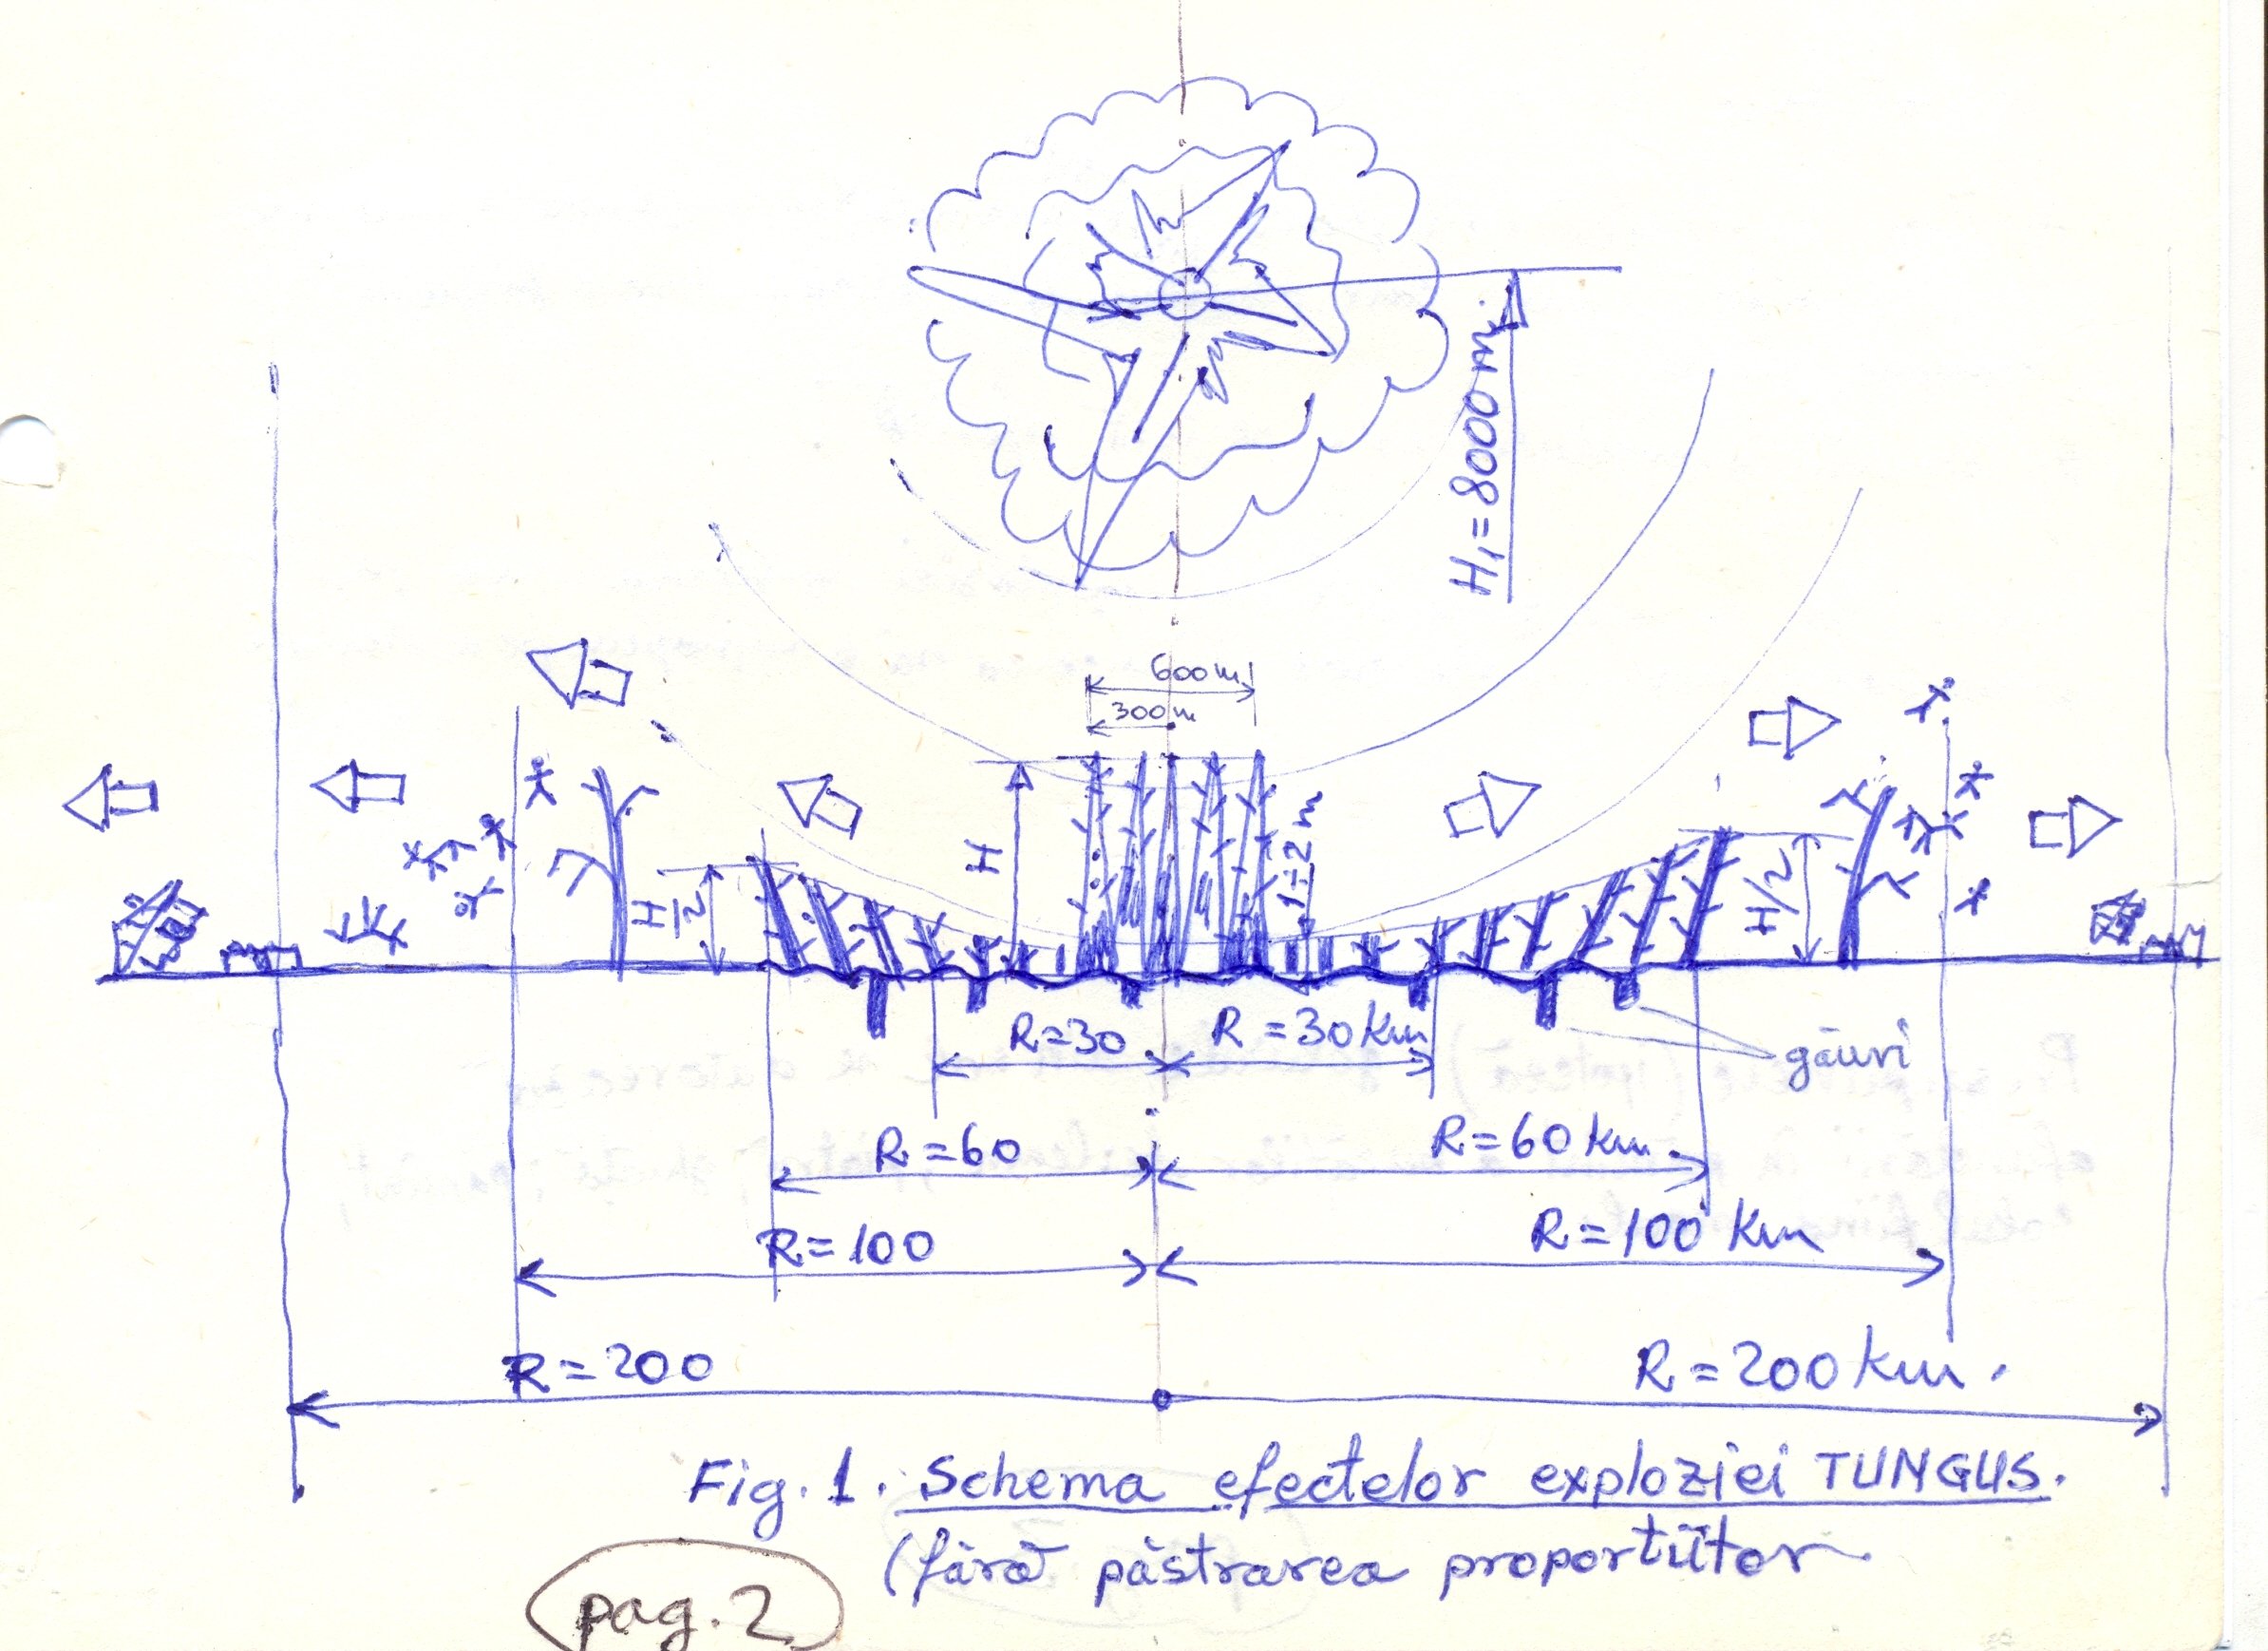 H₁=8000 m.
600 m
300 m
H
1÷2 m
H/2
H/2
R=30
R=30 Km
găuri
R=60
R=60 km.
R=100
R=100 Km
R=200
R=200 km.
Fig. 1. Schema efectelor exploziei TUNGUS.
(fără păstrarea proporțiilor
pag. 2